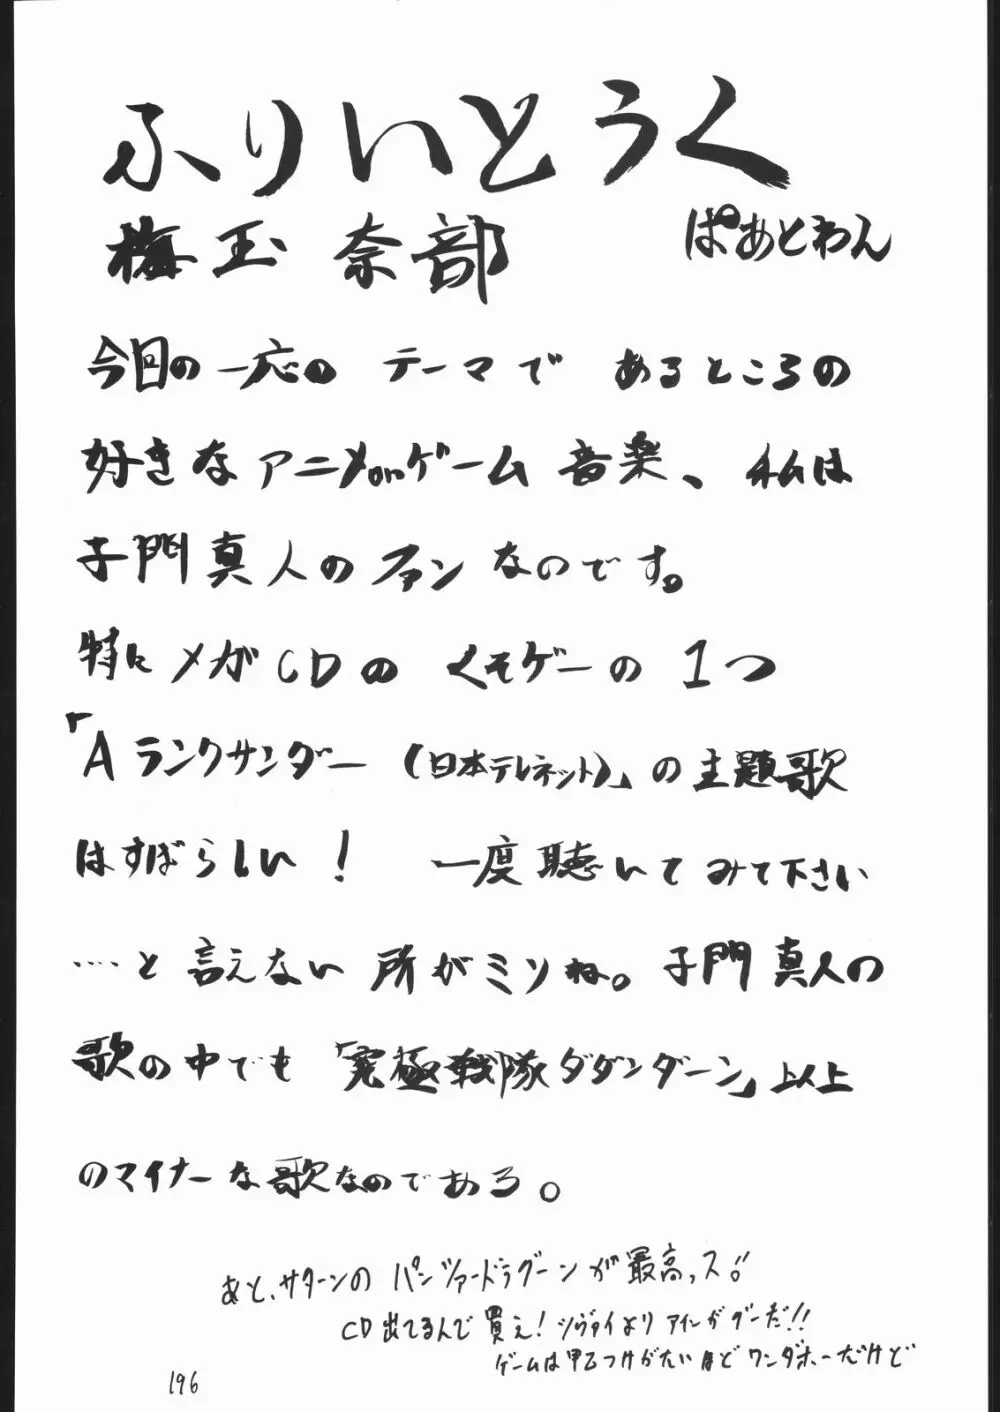 ふりいとうく
梅玉 奈部 ぱあとわん
今回の一応の テーマで あるところの
好きなアニメorゲーム 音楽、私は
子門真人のファンなのです。
特にメガCDの くそゲーの 1つ
「Aランクサンダー (日本テレネット)」の主題歌
はすばらしい! 一度聴いてみて下さい
‥‥と 言えない 所がミソね。子門真人の
歌の中でも「究極戦隊ダダンダーン」以上
のマイナーな歌なのである。
あと、サターンの パンツァードラグーンが最高っス!!
CD出てるんで買え! シヴァイより アインがグーだ!!
ゲームは甲乙つけがたいほど ワンダホーだけど
196